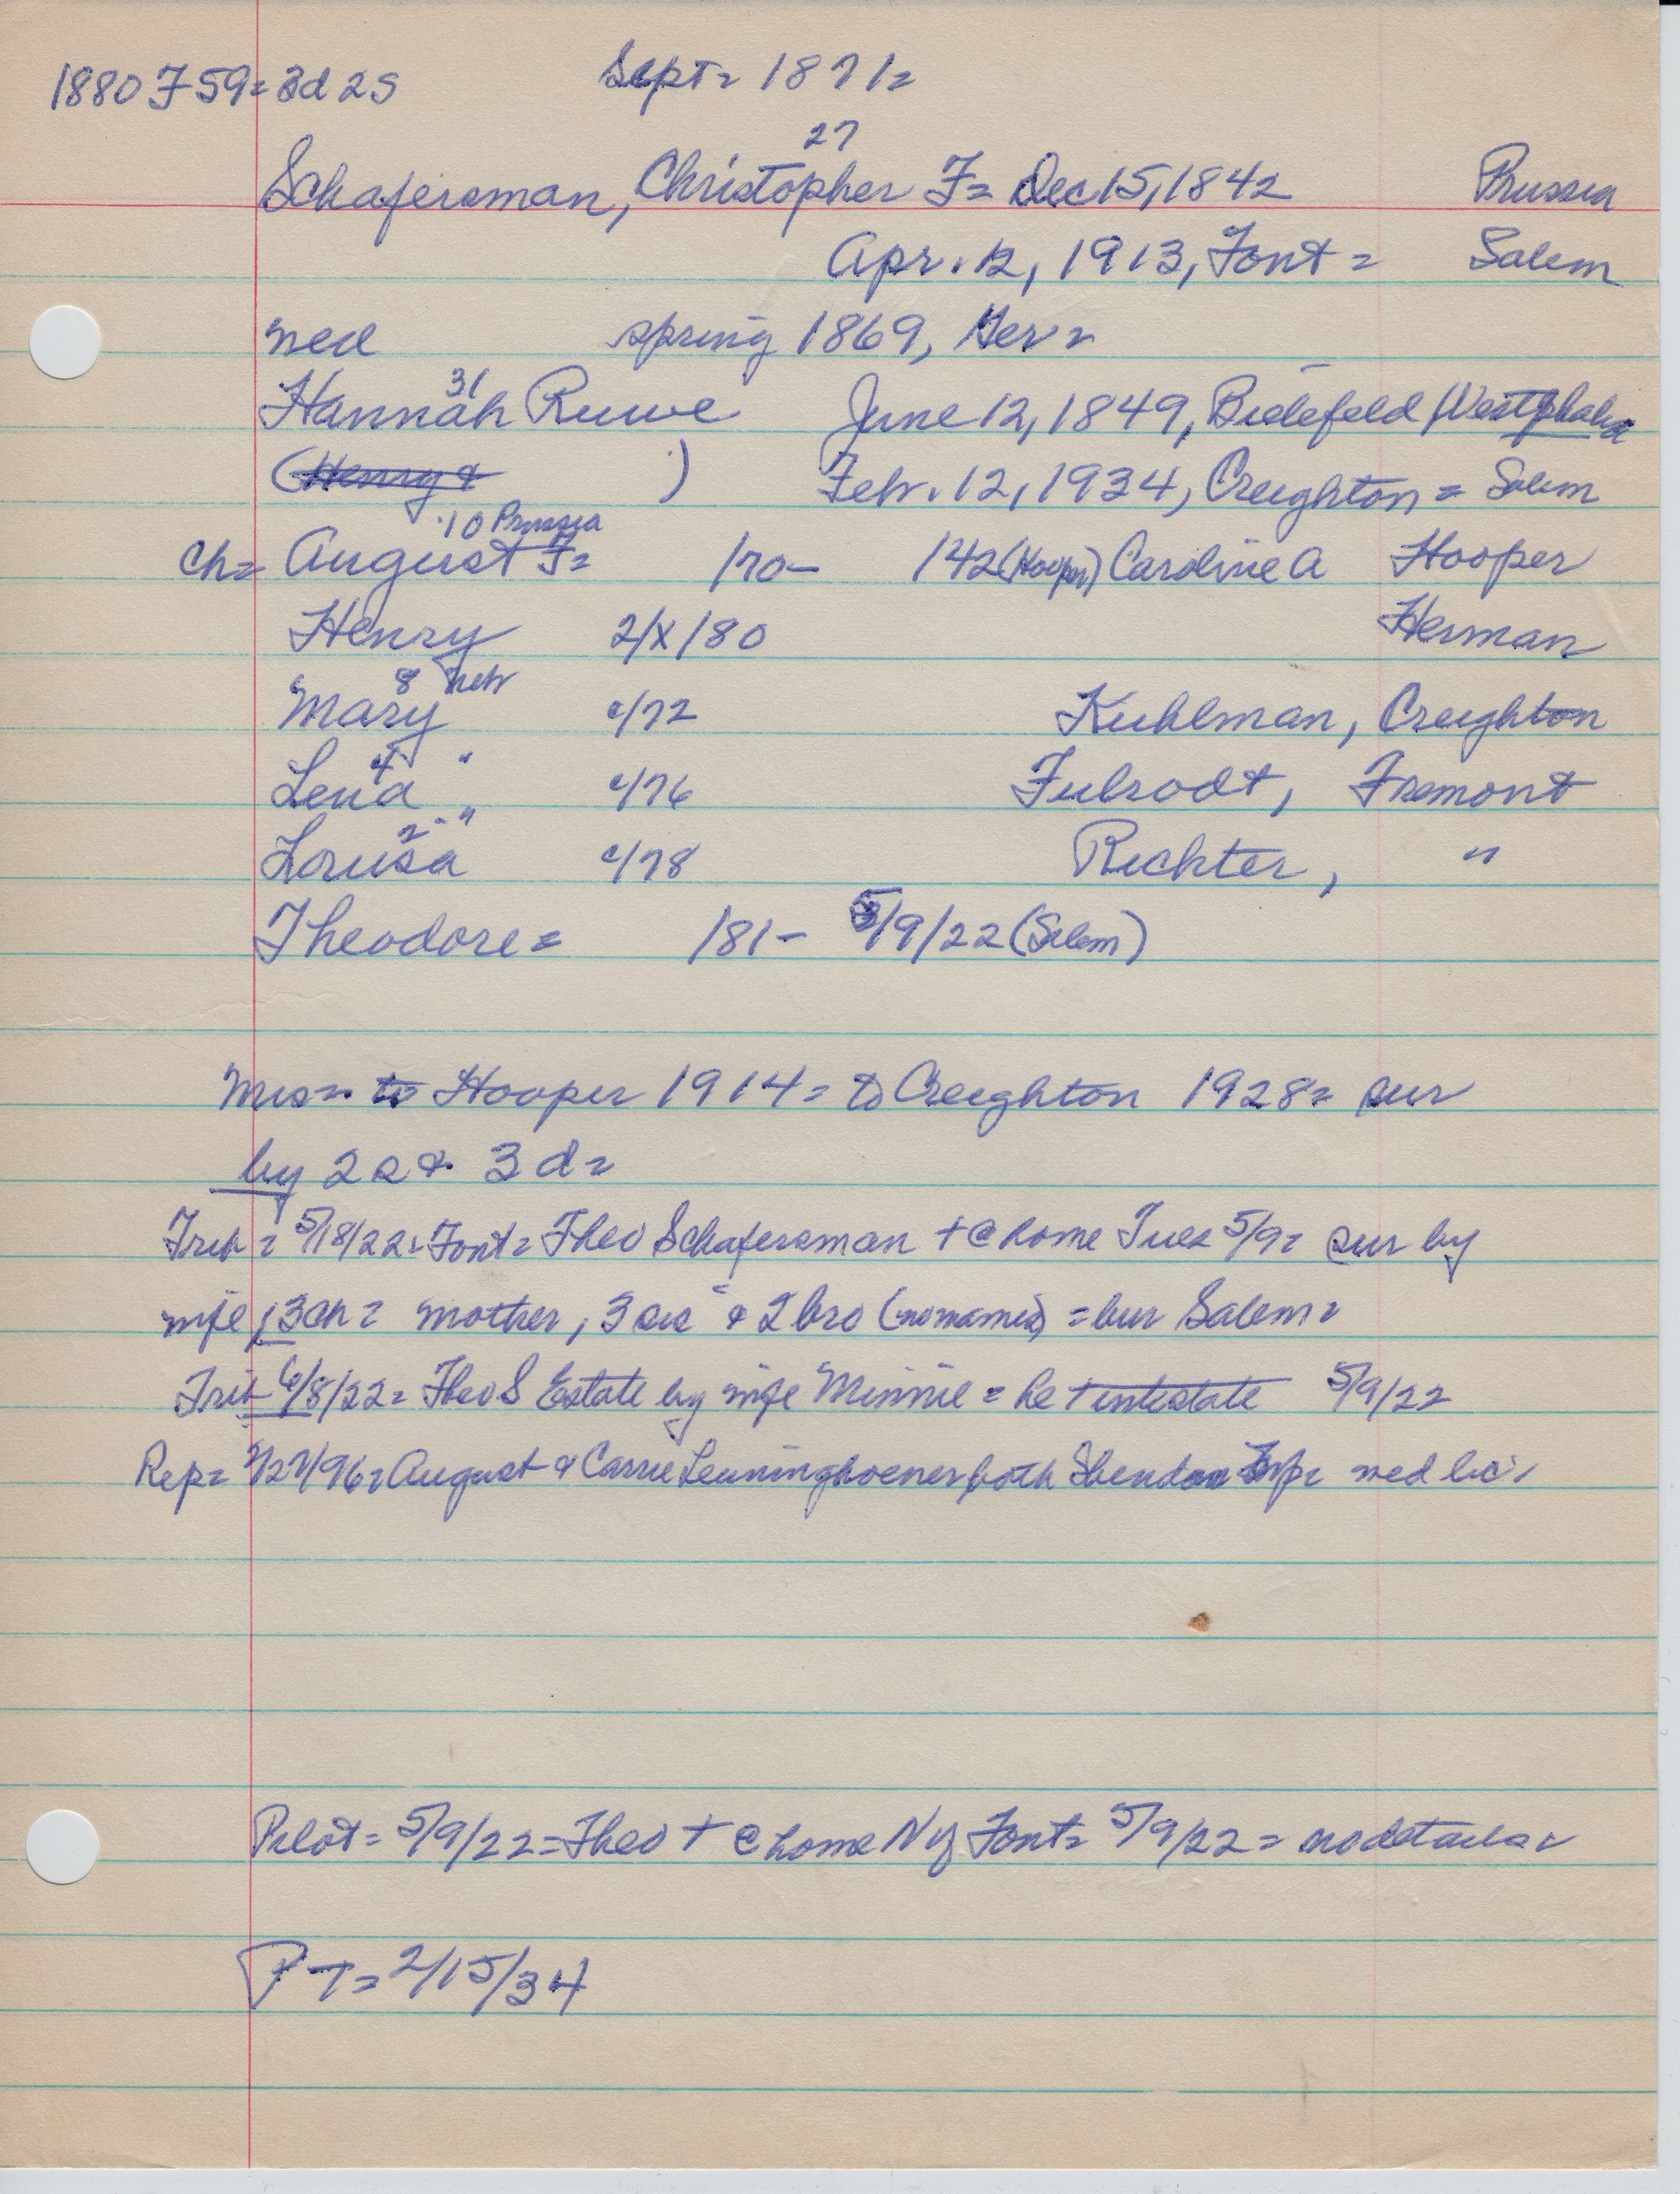 1880 F 59= 3d 2s
Sept= 1871=
27
Schafersman, Christopher F= Dec 15, 1842 Prussia
Apr. 12, 1913, Font = Salem
med spring 1869, Ger=
31
Hannah Ruwe June 12, 1849, Bielefeld Westphalia
(Henry & ) Feb. 12, 1934, Creighton = Salem
10 Prussia
Ch= August F= /70- /42 (Hooper) Caroline A Hooper
Henry 2/X/80 Herman
8 Neb
Mary c/72 Kuhlman, Creighton
4 "
Lena " c/76 Fulrodt, Fremont
2 "
Louisa c/78 Richter, "
Theodore= /81- 5/9/22 (Salem)
Mrs= to Hooper 1914= to Creighton 1928= sur
by 2s & 3d=
Trib= 5/18/22= Font= Theo Schafersman + @ home Tues 5/9= sur by
wife, 3 ch= mother, 3 sis & 2 bro (no names) = bur Salem=
Trib 6/8/22= Theo S Estate by wife Minnie = he + intestate 5/9/22
Rep= August & Carrie Leuninghoener both med lic
Pilot= 5/9/22= Theo + @ home N of Font= 5/9/22= no details=
PT= 2/15/34